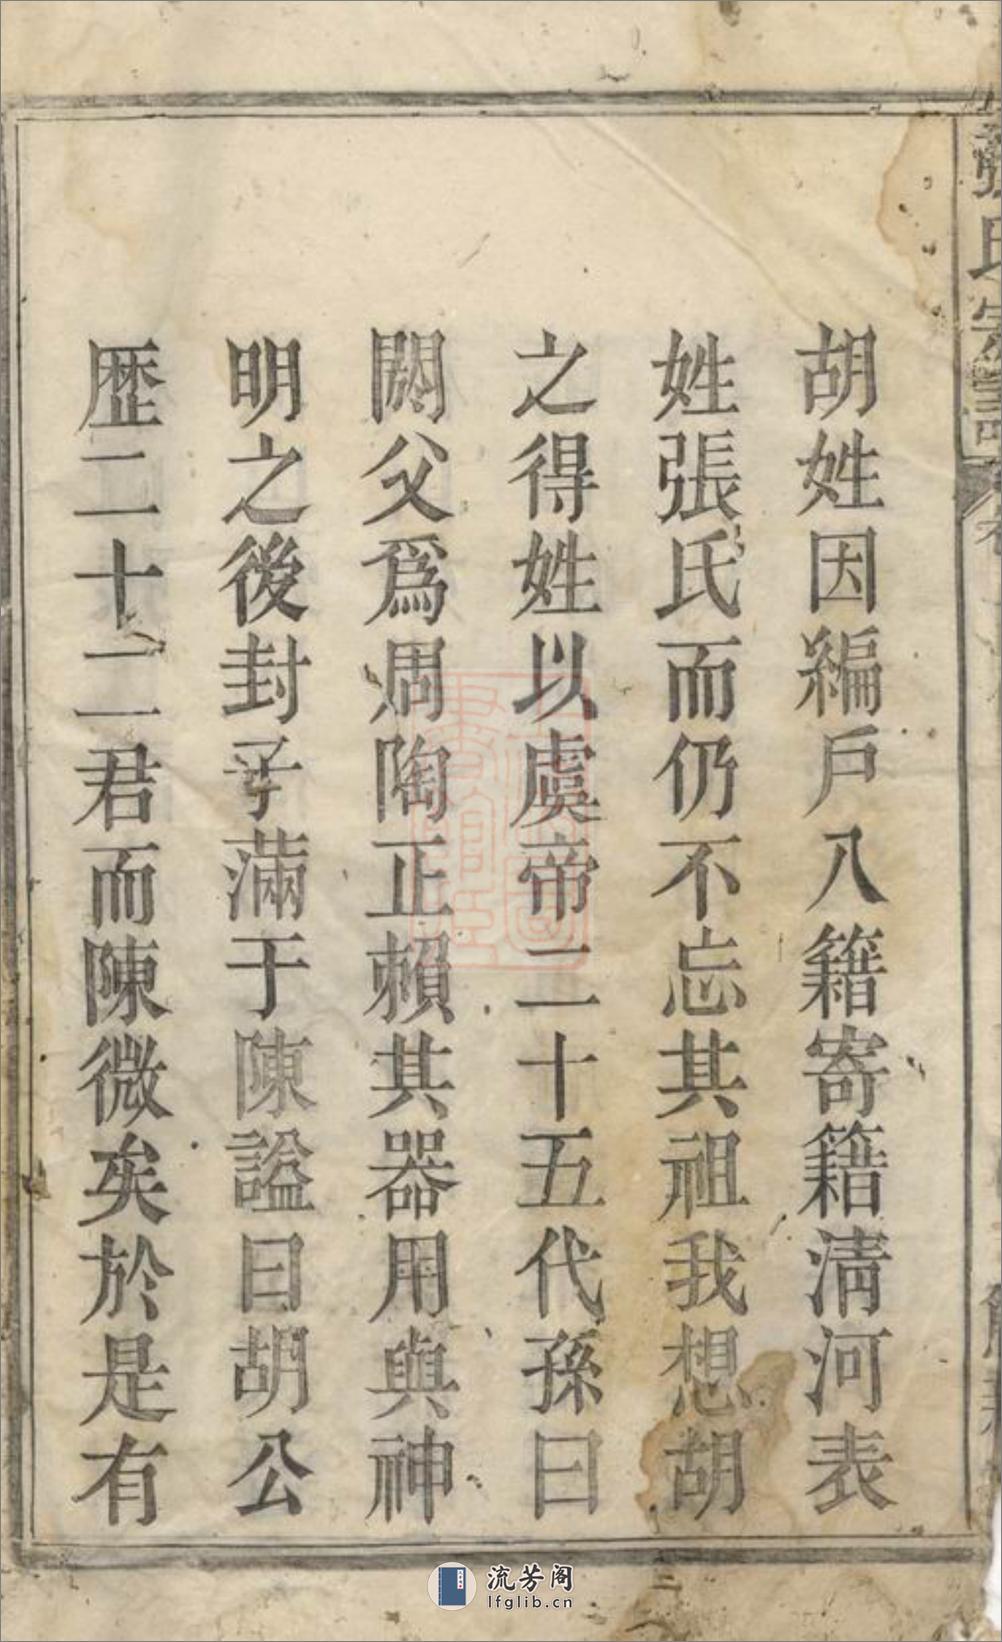 胡姓因編戶入籍寄籍清河表
姓張氏而仍不忘其祖我想胡
之得姓以虞帝二十五代孫曰
閼父爲周陶正賴其器用與神
明之後封子滿于陳謚曰胡公
歴二十二君而陳微矣於是有
張氏宗譜
流芳阁
lfglib.cn